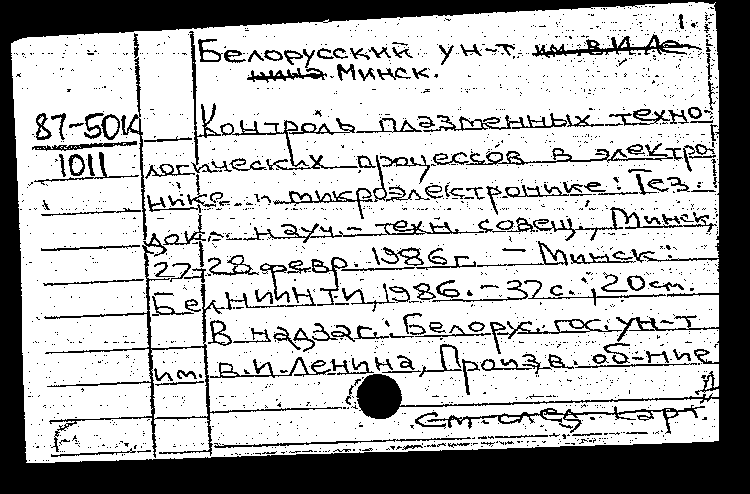 1.
Белорусский ун-т им. В.И.Ле-
нина Минск.
87-50К
1011
Контроль плазменных техно-
логических процессов в электро-
нике и микроэлектронике: Тез.
докл. науч.-техн. совещ., Минск,
27-28 февр. 1986 г. - Минск:
БелНИИНТИ, 1986. - 37 с.; 20 см.
В надзаг.: Белорус. гос. ун-т
им. В.И.Ленина, Произв. об-ние
См. след. карт.